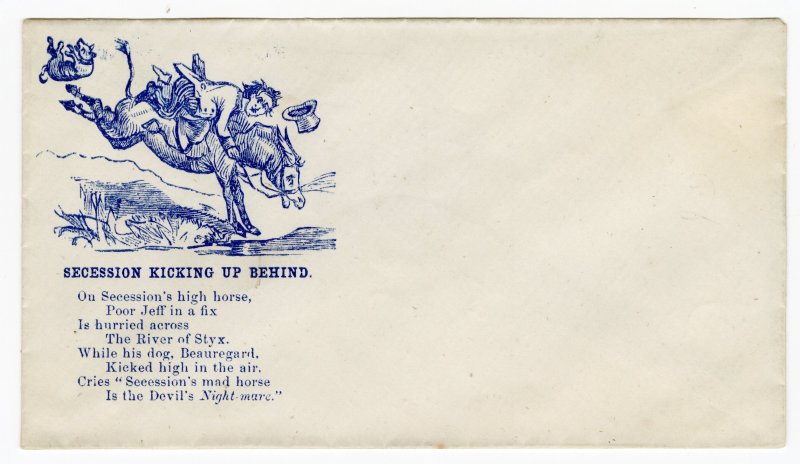 SECESSION KICKING UP BEHIND.
On Secession's high horse,
Poor Jeff in a fix
Is hurried across
The River of Styx.
While his dog, Beauregard,
Kicked high in the air,
Cries "Secession's mad horse
Is the Devil's Night-mare."